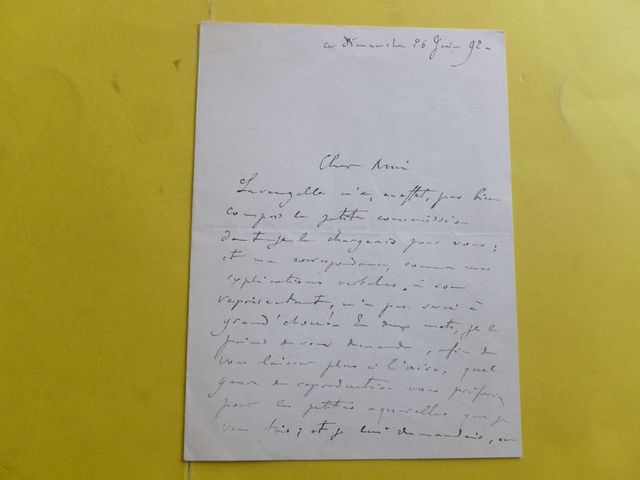 ce dimanche 26 Juin 92 -
Cher Ami
n'a, en effet, pas bien
compris la petite commission
dont je le chargeais pour vous ;
et ma correspondance, comme mes
explications verbales, à son
représentant, n'a pas servi à
grand'chose. En deux mots, je le
priais de vous demander, afin de
vous laisser plus à l'aise, quel
genre de reproduction vous préférez
pour les petites aquarelles que je
vous fais ; et je lui demandais, en